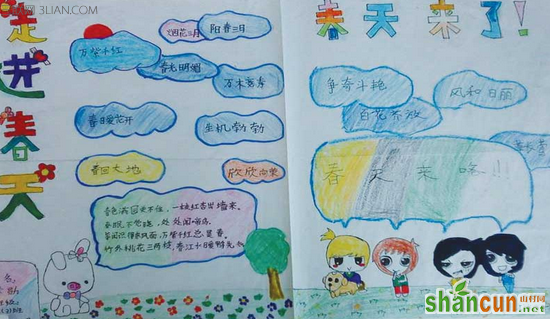 3LIAN.COM
走进春天
烟花三月
阳春三月
万紫千红
春光明媚
万木竞秀
春暖花开
生机勃勃
春回大地
欣欣向荣
春色满园关不住,一枝红杏出墙来。
春眠不觉晓,处处闻啼鸟。
等闲识得东风面,万紫千红总是春。
竹外桃花三两枝,春江水暖鸭先知
春天来了!
争奇斗艳
百花齐放
风和日丽
春天来咯!!!
shancun
山村网
.net